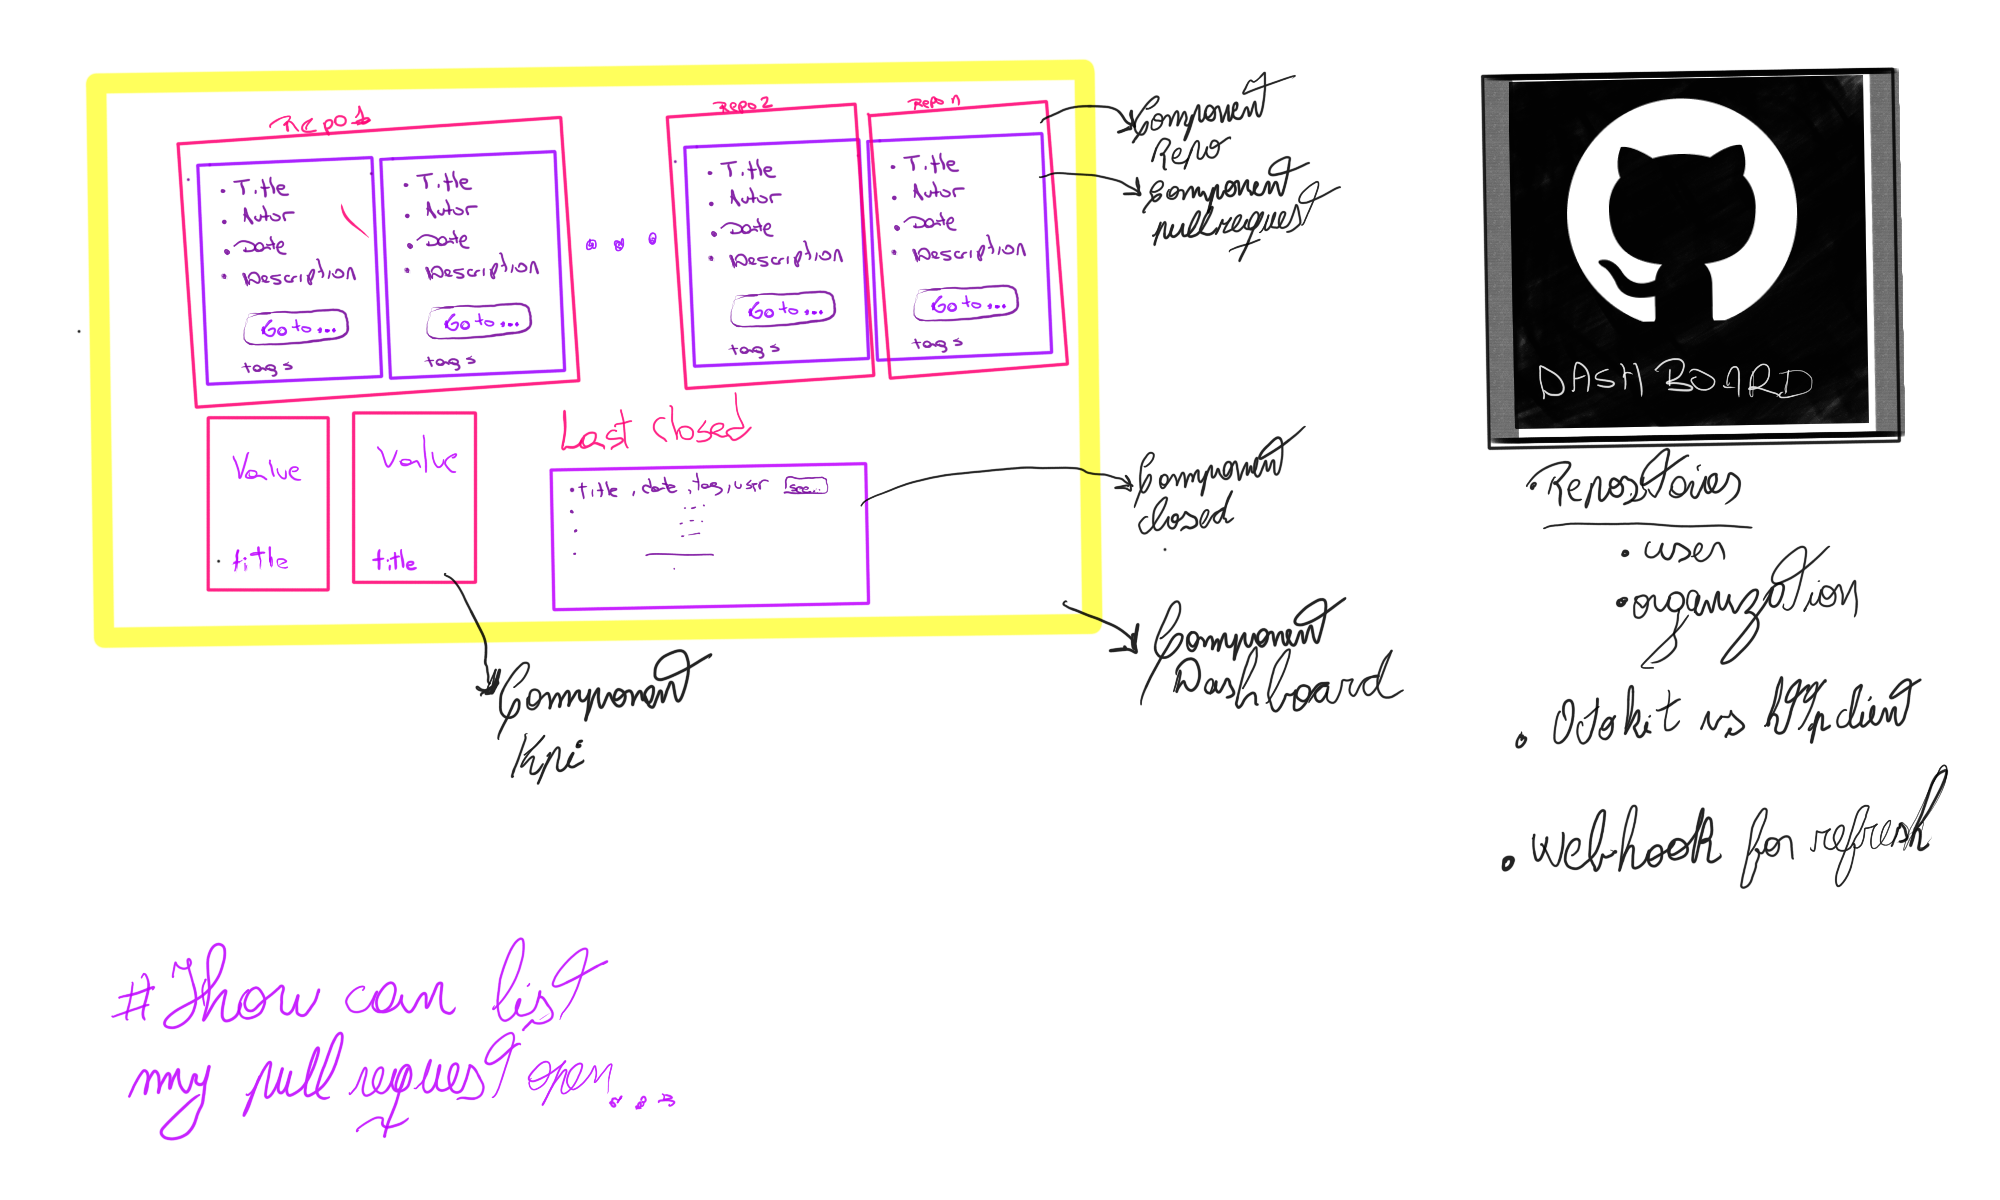 Repo1
Repo2
Repo n
• Title
• Autor
• Date
• Description
Go to ...
tags
• Title
• Autor
• Date
• Description
Go to ...
tags
• Title
• Autor
• Date
• Description
Go to ...
tags
• Title
• Autor
• Date
• Description
Go to ...
tags
Component
Repo
Component
pull request
Value
title
Value
title
Last closed
• title, date, tag, user see...
Component
closed
Component
Dashboard
Component
Kpi
DASHBOARD
• user
• organization
• Octokit vs httpclient
• Webhook for refresh
#Thow can list
my pull request open...